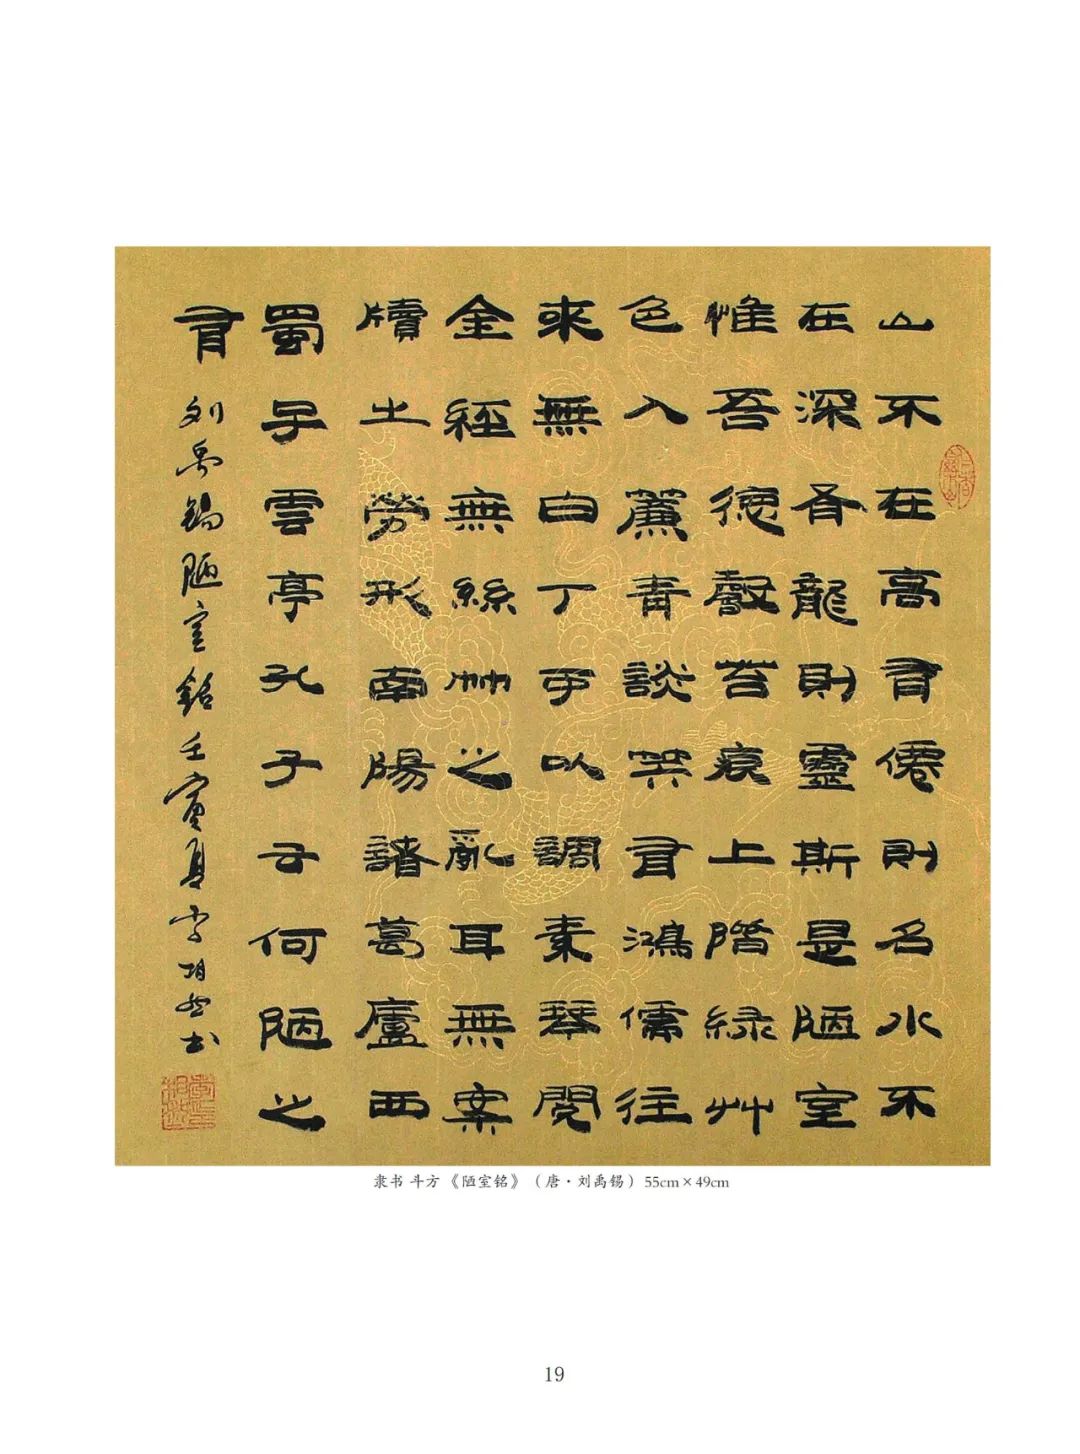 山不在高有僊則名水不
在深有龍則靈斯是陋室
惟吾德馨苔痕上階緑艸
色入簾青談笑有鴻儒往
來無白丁可以調素琴閱
金經無絲竹之亂耳無案
牘之勞形南陽諸葛廬西
蜀子雲亭孔子云何陋之
有 刘禹錫陋室銘壬寅夏李书
隶书 斗方 《陋室铭》（唐·刘禹锡）55cm×49cm
19